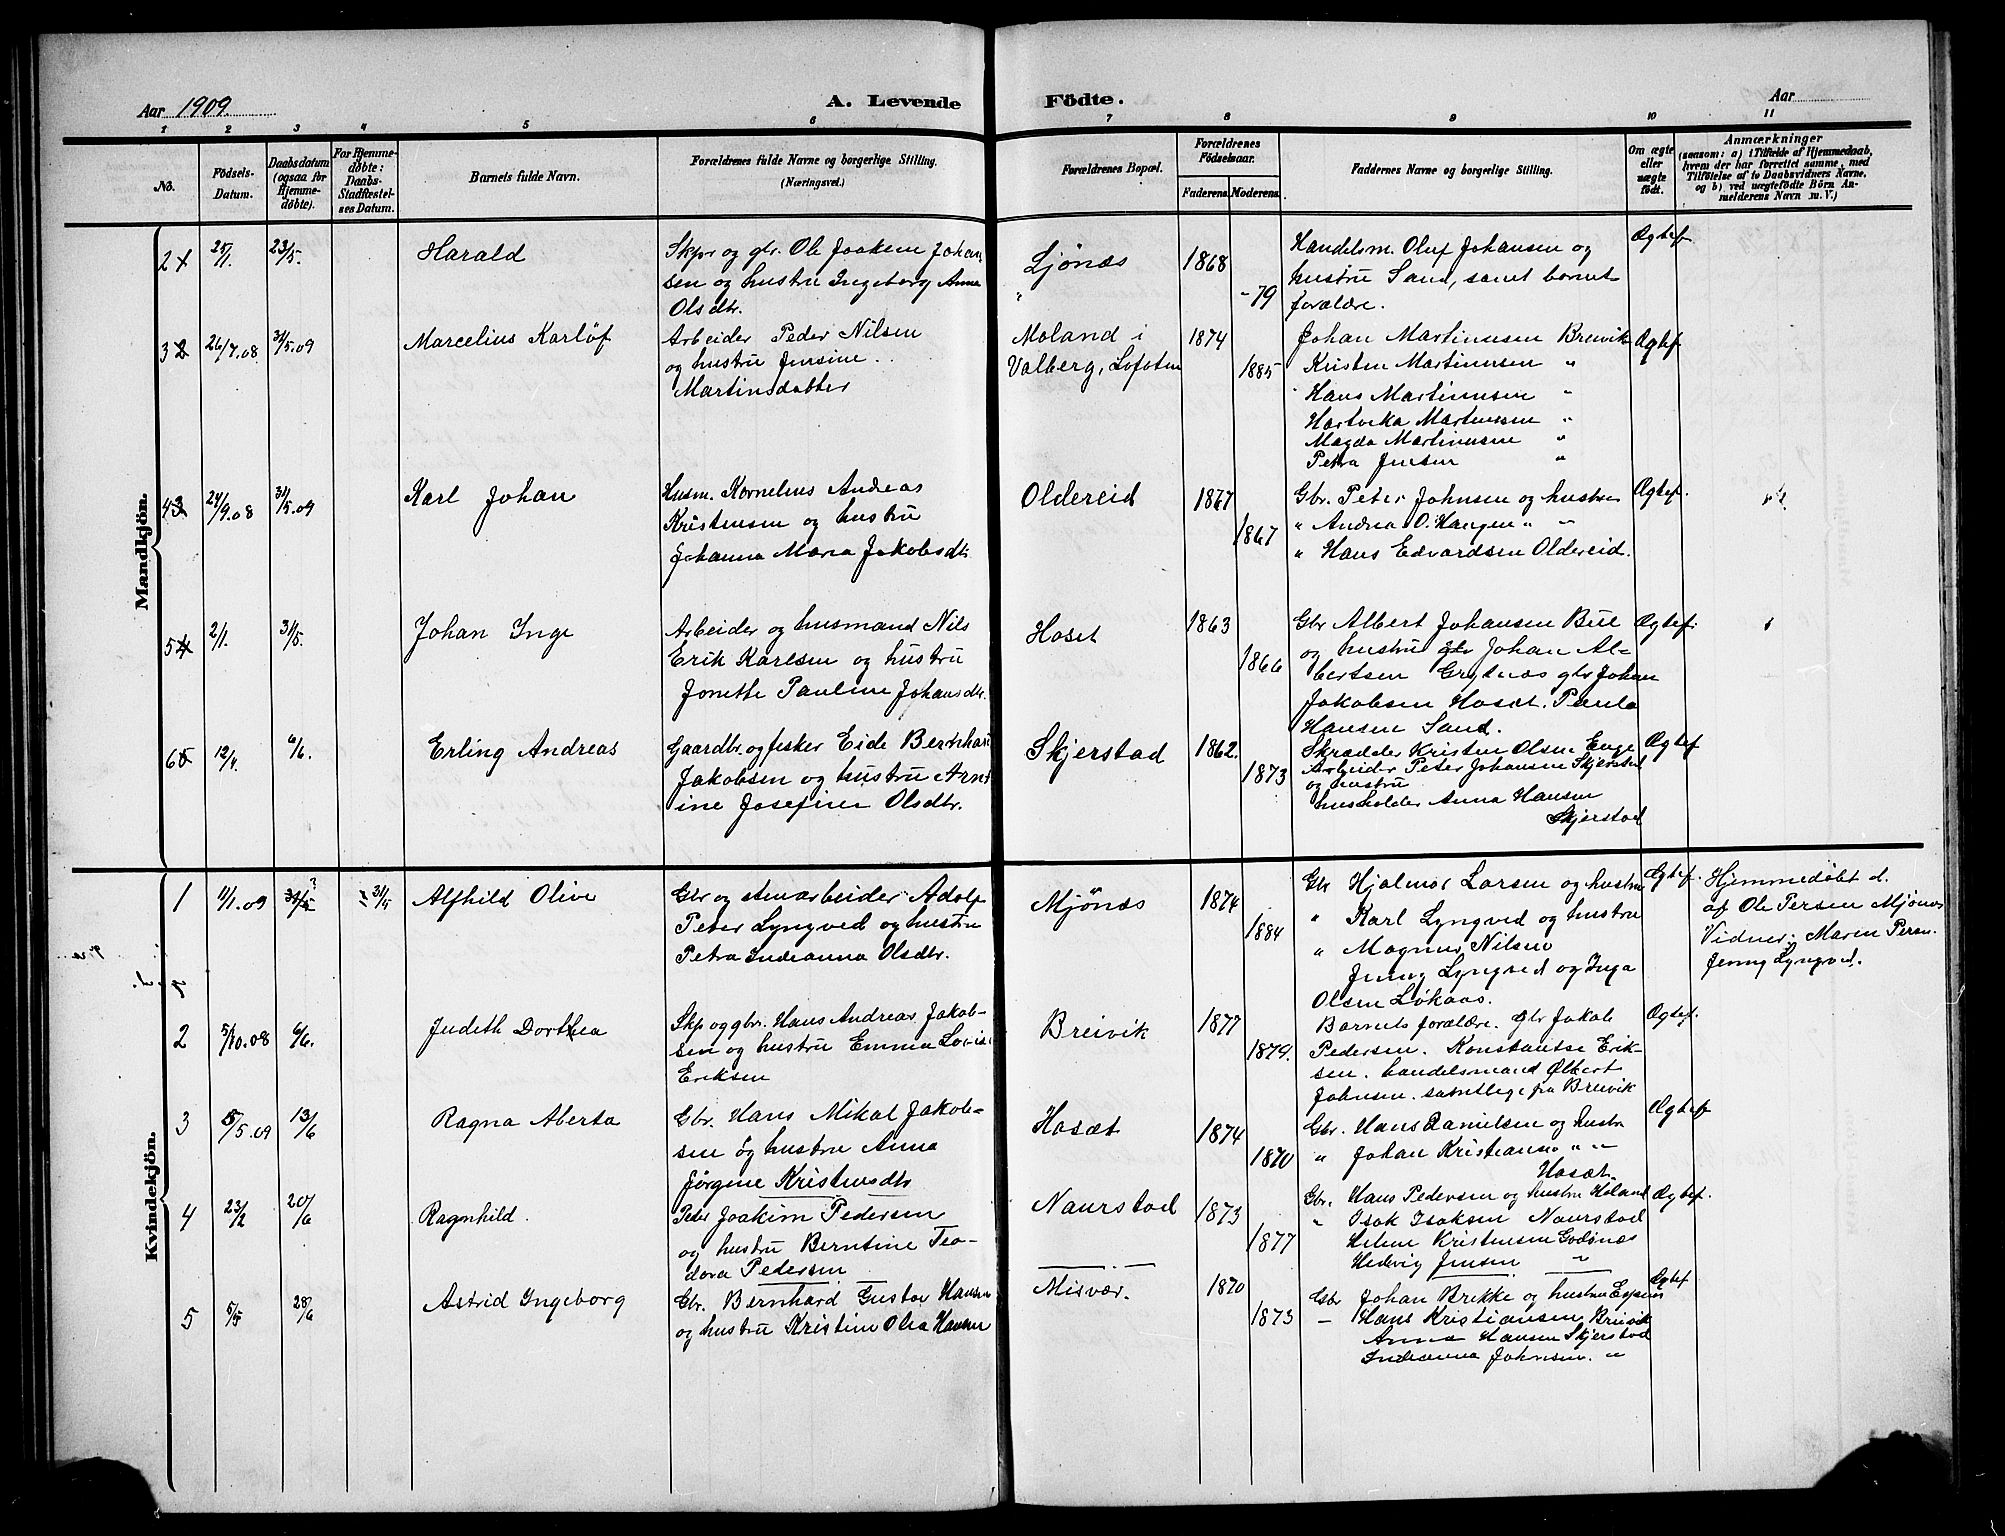 Aar 1909.
A. Levende Födte.
Aar
1 2 3 4 5 6 7 8 9 10 11
No.
Födsels-Datum.
Daabsdatum (ogsaa for Hjemmedöbte).
For Hjemmedöbte: Daabs-Stadfæstelses Datum.
Barnets fulde Navn.
Forældrenes fulde Navne og borgerlige Stilling. (Næringsvei.)
Forældrenes Bopæl.
Forældrenes Födselsaar.
Faderens. Moderens.
Faddernes Navne og borgerlige Stilling.
Om ægte eller uægte födt.
Anmærkninger
(saasom: a) i Tilfælde af Hjemmedaab, hvem der har forrettet samme, med Tilföielse af to Daabsvidners Navne, og b) ved uægtefödte Börn Anmelderens Navn m. V.)
Mandkjön.
2 25/1. 23/5. Harald
Skpr og gbr. Ole Joakim Johan
sen og hustru Ingeborg Anna
Olsdtr.
Ljönæs
1868
-79
Handelsm. Oluf Johansen og
hustru Sand, samt barnets
forældre.
Ægtef.
3 26/7.08 31/5.09 Marcelius Karlöf
Arbeider Peder Nilsen
og hustru Jensine
Martinsdatter
Moland i
Valberg, Lofoten
1874
1885
Johan Martinussen Breivik
Kristen Martinussen "
Hans Martinussen "
Hartvika Martinussen "
Magda Martinussen "
Petra Jensen "
Ægtef
4 24/9.08 31/5.09 Karl Johan
Husm. Kornelius Andreas
Kristensen og hustru
Johanna Maria Jakobsdtr
Oldereid
1867
1867
Gbr. Peter Johnsen og hustru
" Andrea O. Haugen " "
" Hans Edvardsen Oldereid.
Ægtef.
5 2/1. 31/5. Johan Inge
Arbeider og husmand Nils
Erik Karlsen og hustru
Jonette Pauline Johansdtr.
Hoset
1863
1866
Gbr Albert Johansen Bue
og hustru Johan Al-
bertsen Grytnæs gbr Johan
Jakobsen Hoset. Paula
Hansen Sand.
Ægtef.
6 12/4. 6/6. Erling Andreas
Gaardbr. og fisker Eide Bernhard
Jakobsen og hustru Arnt
ine Josefine Olsdtr.
Skjerstad
1862.
1873
Skrædder Kristen Olsen Enge
Arbeider Peter Johansen Skjerstad
og hustru
husholder Anna Hansen
Skjerstad
Ægtef
Kvindekjön.
1 11/1.09 31/5 31/5 Alfhild Olive
Gbr og Amarbeider Adolf
Peter Lyngved og hustru
Petra Indianna Olsdtr.
Mjönæs
1874
1884
Gbr Hjalmar Larsen og hustru
" Karl Lyngved og hustru
" Magnus Nilsen
Jenny Lyngved og Inga
Olsen Løkaas.
Ægtef.
Hjemmedöbt d.
af Ole Persen Mjönæs
Vidner: Maren Persen.
Jenny Lyngved.
2 5/10.08 6/6. Judith Dorthea
Skp og gbr. Hans Andreas Jakob-
sen og hustru Emma Lovise
Eriksen
Breivik
1877
1879.
Barnets forældre. Gbr Jakob
Pedersen. Konstantse Erik-
sen. handelsmand Olbert
Johnsen. samtlige fra Breivik
Ægtef.
3 5/5.09 13/6 Ragna Aberta
Gbr. Hans Mikal Jakob-
sen og hustru Anna
Jørgine Kristensdtr
Hosæt
1874
1870
Gbr. Hans Danielsen og hustru
" Johan Kristiansen " "
Hosæt.
Ægtef
4 23/2 20/6 Ragnhild.
Peder Joakim Pedersen
og hustru Berntine Teo-
dora Pedersen
Naurstad
1873
1877
Gbr. Hans Pedersen og hustru Höland
" Isak Isaksen Naurstad
Helene Kristensen Godönæs
Hedvig Jensen "
Ægtef.
5 5/5 28/6 Astrid Ingeborg
Gbr. Bernhard Gustav Hansen
og hustru Kristine Olea Hansen
Misvær.
1870
1873
Gbr Johan Brekke og hustru
– Hans Kristiansen, Breivik
Anna Hansen Skjerstad
Indianna Johnsen. "
Ægtef.